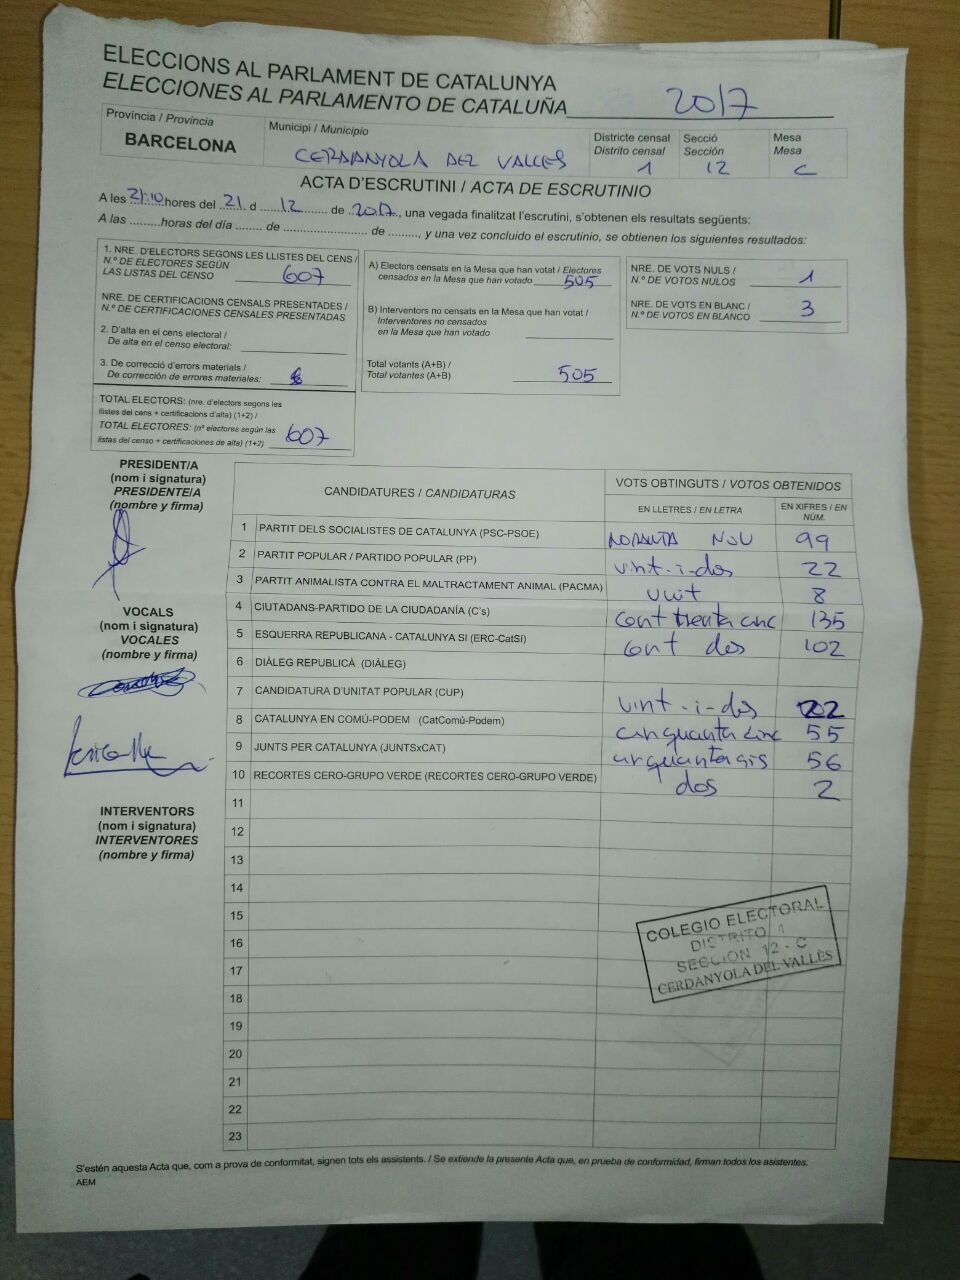 ELECCIONS AL PARLAMENT DE CATALUNYA
ELECCIONES AL PARLAMENTO DE CATALUÑA 2017
Provincia / Provincia
BARCELONA
Municipi / Municipio
CERDANYOLA DEL VALLES
Districte censal
Distrito censal
1
Secció
Sección
12
Mesa
Mesa
C
ACTA D'ESCRUTINI / ACTA DE ESCRUTINIO
A les 21:10 hores del 21 d 12 de 2017, una vegada finalitzat l'escrutini, s'obtenen els resultats següents:
A las ........horas del día ........ de ........................ de ........, y una vez concluido el escrutinio, se obtienen los siguientes resultados:
1. NRE. D'ELECTORS SEGONS LES LLISTES DEL CENS /
N.º DE ELECTORES SEGÚN
LAS LISTAS DEL CENSO 607
NRE. DE CERTIFICACIONS CENSALS PRESENTADES /
N.º DE CERTIFICACIONES CENSALES PRESENTADAS
2. D'alta en el cens electoral /
De alta en el censo electoral:
3. De correcció d'errors materials /
De corrección de errores materiales:
TOTAL ELECTORS: (nre. d'electors segons les
llistes del cens + certificacions d'alta) (1+2) /
TOTAL ELECTORES: (nº electores según las
listas del censo + certificaciones de alta) (1+2) 607
A) Electors censats en la Mesa que han votat / Electores
censados en la Mesa que han votado 505
B) Interventors no censats en la Mesa que han votat /
Interventores no censados
en la Mesa que han votado
Total votants (A+B) /
Total votantes (A+B) 505
NRE. DE VOTS NULS /
N.º DE VOTOS NULOS 1
NRE. DE VOTS EN BLANC /
N.º DE VOTOS EN BLANCO 3
PRESIDENT/A
(nom i signatura)
PRESIDENTE/A
(nombre y firma)
VOCALS
(nom i signatura)
VOCALES
(nombre y firma)
INTERVENTORS
(nom i signatura)
INTERVENTORES
(nombre y firma)
CANDIDATURES / CANDIDATURAS
VOTS OBTINGUTS / VOTOS OBTENIDOS
EN LLETRES / EN LETRA
EN XIFRES / EN
NÚM.
1 PARTIT DELS SOCIALISTES DE CATALUNYA (PSC-PSOE) NORANTA NOU 99
2 PARTIT POPULAR / PARTIDO POPULAR (PP) vint-i-dos 22
3 PARTIT ANIMALISTA CONTRA EL MALTRACTAMENT ANIMAL (PACMA) vuit 8
4 CIUTADANS-PARTIDO DE LA CIUDADANÍA (C's) cent trenta cinc 135
5 ESQUERRA REPUBLICANA - CATALUNYA SI (ERC-CatSí) cent dos 102
6 DIÀLEG REPUBLICÀ (DIÀLEG)
7 CANDIDATURA D'UNITAT POPULAR (CUP) vint-i-dos 22
8 CATALUNYA EN COMÚ-PODEM (CatComú-Podem) cinquanta cinc 55
9 JUNTS PER CATALUNYA (JUNTSxCAT) cinquanta sis 56
10 RECORTES CERO-GRUPO VERDE (RECORTES CERO-GRUPO VERDE) dos 2
11
12
13
14
15
16
17
18
19
20
21
22
23
COLEGIO ELECTORAL
DISTRITO 1
SECCION 12 - C
CERDANYOLA DEL VALLÈS
S'estén aquesta Acta que, com a prova de conformitat, signen tots els assistents. / Se extiende la presente Acta que, en prueba de conformidad, firman todos los asistentes.
AEM